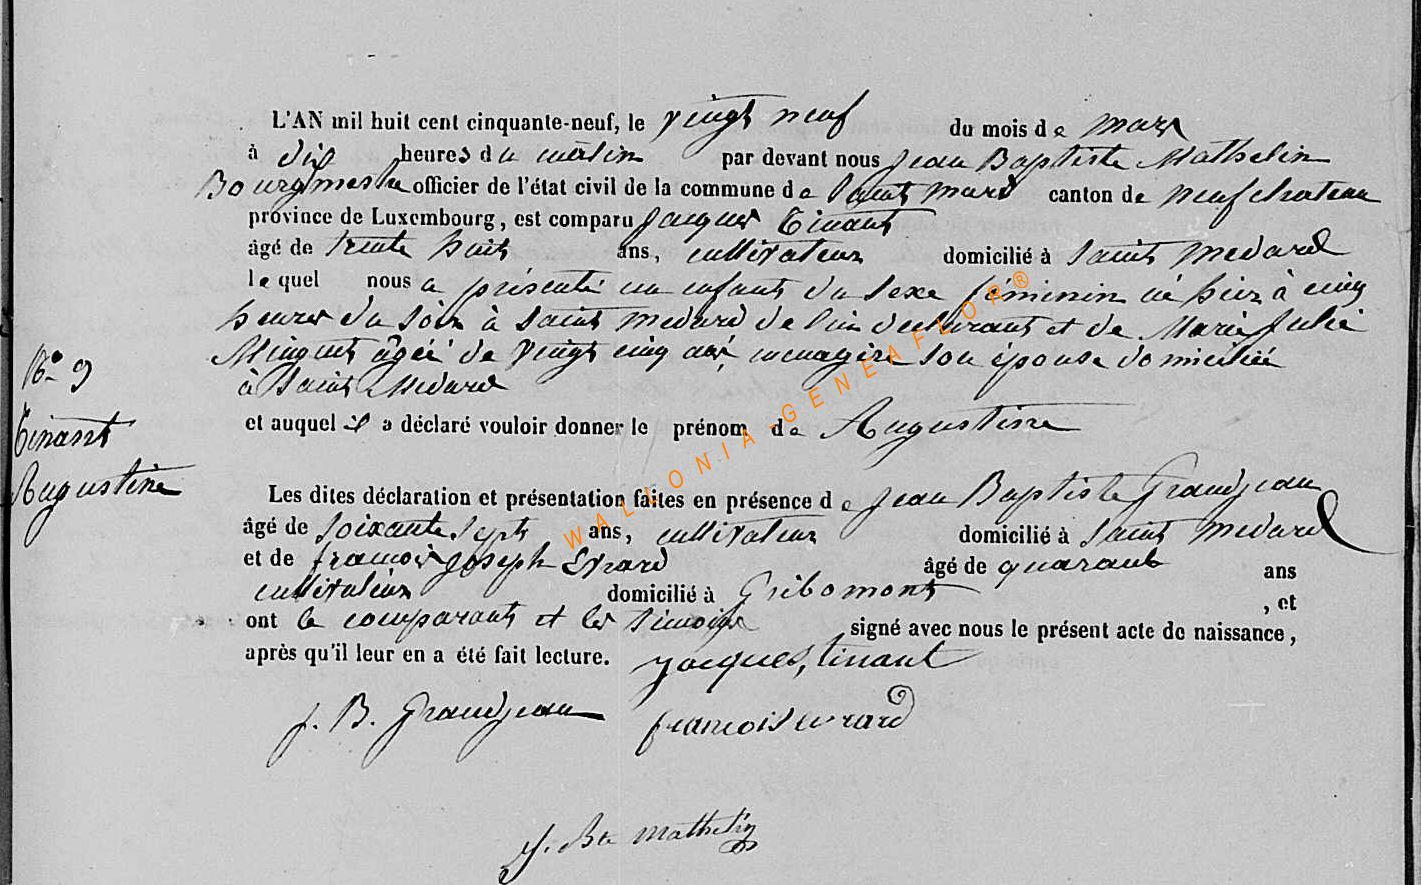 L'AN mil huit cent cinquante-neuf, le vingt neuf du mois de mars
à dix heures du matin par devant nous Jean Baptiste Mathelin
Bourgmestre officier de l'état civil de la commune de Saint Mard canton de Neufchateau
province de Luxembourg, est comparu Jacques Tinant
âgé de trente huit ans, cultivateur domicilié à Saint Medard
lequel nous a présenté un enfant du sexe féminin né hier à cinq
heures du soir à Saint Medard de lui déclarant et de Marie Julie
âgée de vingt cinq ans, menagère son épouse domiciliée
à Saint Medard
et auquel il a déclaré vouloir donner le prénom de Augustine
Les dites déclaration et présentation faites en présence de Jean Baptiste Grandjean
âgé de soixante sept ans, cultivateur domicilié à Saint Medard
et de francois Joseph Evrard âgé de quarante ans
cultivateur domicilié à Gribomont , et
ont le comparant et les témoins signé avec nous le présent acte de naissance,
après qu'il leur en a été fait lecture. Jacques, tinant
J. B. Grandjean francois evrard
J. Bte Mathelin
No 9
Tinant
Augustine
WALLONIA-GENEAFLOR®